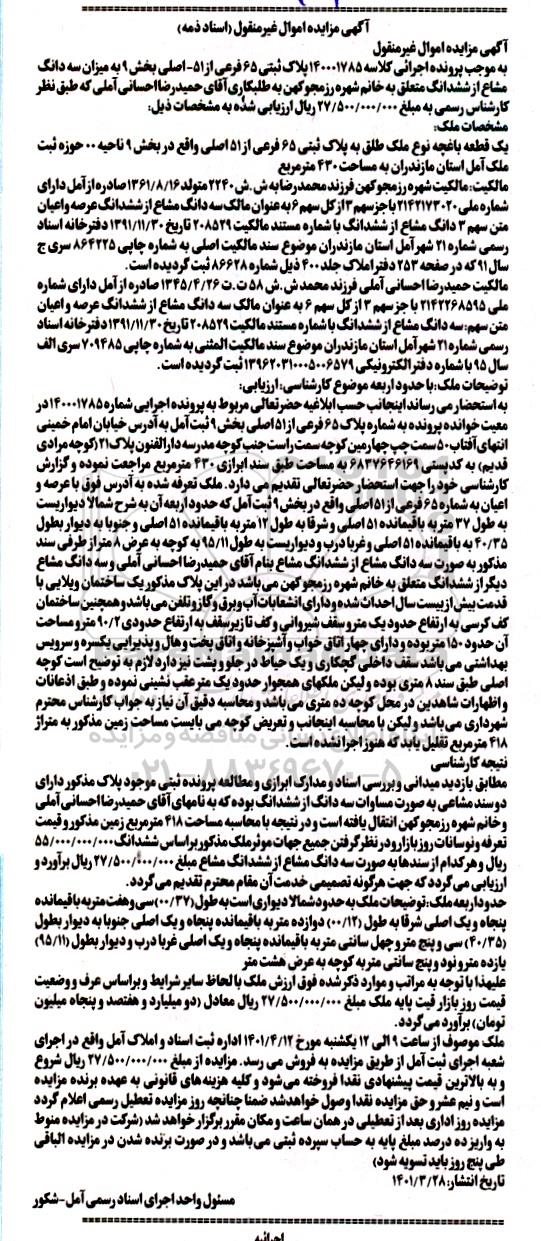 آگهی مزایده اموال غیرمنقول (اسناد ذمه)
آگهی مزایده اموال غیرمنقول
به موجب پرونده اجرائی کلاسه ۱۴۰۰۰۱۷۸۵ پلاک ثبتی ۶۵ فرعی از ۵۱- اصلی بخش ۹ به میزان سه دانگ
مشاع از ششدانگ متعلق به خانم شهره رزمجو کهن به طلبکاری آقای حمیدرضا احسانی آملی که طبق نظر
کارشناس رسمی به مبلغ ۲۷/۵۰۰/۰۰۰/۰۰۰ ریال ارزیابی شده به مشخصات ذیل:
مشخصات ملک:
یک قطعه باغچه نوع ملک طلق به پلاک ثبتی ۶۵ فرعی از ۵۱ اصلی واقع در بخش ۹ ناحیه ۰۰ حوزه ثبت
ملک آمل استان مازندران به مساحت ۴۳۰ مترمربع
مالکیت: مالکیت شهره رزمجو کهن فرزند محمدرضا به ش.ش ۲۲۴۰ متولد ۱۳۶۱/۸/۱۶ صادره از آمل دارای
شماره ملی ۲۱۴۲۱۷۳۰۲۰ با جز سهم ۳ از کل سهم ۶ به عنوان مالک سه دانگ مشاع از ششدانگ عرصه واعیان
متن سهم ۳ دانگ مشاع از ششدانگ با شماره مستند مالکیت ۲۰۸۵۲۹ تاریخ ۱۳۹۱/۱۱/۳۰ دفترخانه اسناد
رسمی شماره ۲۱ شهر آمل استان مازندران موضوع سند مالکیت اصلی به شماره چاپی ۸۶۴۲۲۵ سری ج
سال ۹۱ که در صفحه ۲۵۳ دفتر املاک جلد ۴۰۰ ذیل شماره ۸۶۶۲۸ ثبت گردیده است.
مالکیت حمیدرضا احسانی آملی فرزند محمد ش.ش ۵۸ ت.ت ۱۳۴۵/۴/۲۶ صادره از آمل دارای شماره
ملی ۲۱۴۲۲۶۸۵۹۵ با جز سهم ۳ از کل سهم ۶ به عنوان مالک سه دانگ مشاع از ششدانگ عرصه و اعیان
متن سهم: سه دانگ مشاع از ششدانگ با شماره مستند مالکیت ۲۰۸۵۲۹ تاریخ ۱۳۹۱/۱۱/۳۰ دفترخانه اسناد
رسمی شماره ۲۱ شهر آمل استان مازندران موضوع سند مالکیت المثنی به شماره چاپی ۷۰۹۴۸۵ سری الف
سال ۹۵ با شماره دفتر الکترونیکی ۱۳۹۶۲۰۳۱۰۰۰۵۰۰۶۵۷۹ ثبت گردیده است.
توضیحات ملک: با حدود اربعه موضوع کارشناسی: ارزیابی:
به استحضار می رساند اینجانب حسب ابلاغیه حضرتعالی مربوط به پرونده اجرایی شماره ۱۴۰۰۰۱۷۸۵ در
معیت خوانده پرونده به شماره پلاک ۶۵ فرعی از ۵۱ اصلی بخش ۹ ثبت آمل به آدرس خیابان امام خمینی
انتهای آفتاب ۵۰ سمت چپ چهارمین کوچه سمت راست جنب کوچه مدرسه دارالفنون پلاک ۲۱ (کوچه مرادی
قدیم) به کدپستی ۶۸۳۷۶۴۶۱۶۹ به مساحت طبق سند ابرازی ۴۳۰ مترمربع مراجعت نموده و گزارش
کارشناسی خود را جهت استحضار حضرتعالی تقدیم می دارد. ملک تعرفه شده به آدرس فوق با عرصه و
اعیان به شماره ۶۵ فرعی از ۵۱ اصلی واقع در بخش ۹ ثبت آمل که حدود اربعه آن به شرح شمالا دیواریست
به طول ۳۷ متر به باقیمانده ۵۱ اصلی و شرقا به طول ۱۲ متر به باقیمانده ۵۱ اصلی و جنوبا به دیوار بطول
۴۰/۳۵ به باقیمانده ۵۱ اصلی و غربا درب و دیواریست به طول ۹۵/۱۱ به کوچه به عرض ۸ متر از طرفی سند
مذکور به صورت سه دانگ مشاع از ششدانگ مشاع بنام آقای حمیدرضا احسانی آملی و سه دانگ مشاع
دیگر از ششدانگ متعلق به خانم شهره رزمجو کهن می باشد در این پلاک مذکور یک ساختمان ویلایی با
قدمت بیش از بیست سال احداث شده و دارای انشعابات آب و برق و گاز و تلفن می باشد و همچنین ساختمان
کف کرسی به ارتفاع حدود یک متر و سقف شیروانی و کف تا زیرسقف به ارتفاع حدودی ۹۰/۲ متر و مساحت
آن حدود ۱۵۰ متر بوده و دارای چهار اتاق خواب و آشپزخانه و اتاق پخت و هال و پذیرایی یکسره و سرویس
بهداشتی می باشد سقف داخلی گچکاری و یک حیاط در جلو و پشت نیز دارد لازم به توضیح است کوچه
اصلی طبق سند ۸ متری بوده و لیکن ملکهای همجوار حدود یک متر عقب نشینی نموده و طبق اذعانات
و اظهارات شاهدین در محل کوچه ده متری می باشد و محاسبه دقیق آن نیاز به جواب کارشناس محترم
شهرداری می باشد و لیکن با محاسبه اینجانب و تعریض کوچه می بایست مساحت زمین مذکور به متراژ
۴۱۸ مترمربع تقلیل یابد که هنوز اجرا نشده است.
نتیجه کارشناسی
مطابق بازدید میدانی و بررسی اسناد و مدارک ابرازی و مطالعه پرونده ثبتی موجود پلاک مذکور دارای
دو سند مشاعی به صورت مساوات سه دانگ از ششدانگ بوده که به نامهای آقای حمیدرضا احسانی آملی
و خانم شهره رزمجو کهن انتقال یافته است و در نتیجه با محاسبه مساحت ۴۱۸ مترمربع زمین مذکور و قیمت
تعرفه و نوسانات روز بازار و در نظر گرفتن جمیع جهات موثر ملک مذکور براساس ششدانگ ۵۵/۰۰۰/۰۰۰/۰۰۰
ریال و هر کدام از سندها به صورت سه دانگ مشاع از ششدانگ مشاع مبلغ ۲۷/۵۰۰/۰۰۰/۰۰۰ ریال برآورد و
ارزیابی می گردد که جهت هرگونه تصمیمی خدمت آن مقام محترم تقدیم می گردد.
حدود اربعه ملک: توضیحات ملک به حدود شمالا دیواری است به طول (۰۰/۳۷) سی و هفت متر به باقیمانده
پنجاه و یک اصلی شرقا به طول (۰۰/۱۲) دوازده متر به باقیمانده پنجاه و یک اصلی جنوبا به دیوار بطول
(۴۰/۳۵) سی و پنج متر و چهل سانتی متر به باقیمانده پنجاه و یک اصلی غربا درب و دیوار بطول (۹۵/۱۱)
یازده متر و نود و پنج سانتی متر به کوچه به عرض هشت متر
علیهذا با توجه به مراتب و موارد ذکر شده فوق ارزش ملک با لحاظ سایر شرایط و براساس عرف و وضعیت
قیمت روز بازار قیت پایه ملک مبلغ ۲۷/۵۰۰/۰۰۰/۰۰۰ ریال معادل (دو میلیارد و هفتصد و پنجاه میلیون
تومان) برآورد می گردد.
ملک موصوف از ساعت ۹ الی ۱۲ یکشنبه مورخ ۱۴۰۱/۴/۱۲ اداره ثبت اسناد و املاک آمل واقع در اجرای
شعبه اجرای ثبت آمل از طریق مزایده به فروش می رسد. مزایده از مبلغ ۲۷/۵۰۰/۰۰۰/۰۰۰ ریال شروع
و به بالاترین قیمت پیشنهادی نقدا فروخته می شود و کلیه هزینه های قانونی به عهده برنده مزایده
است و نیم عشر و حق مزایده نقدا وصول خواهد شد ضمنا چنانچه روز مزایده تعطیل رسمی اعلام گردد
مزایده روز اداری بعد از تعطیلی در همان ساعت و مکان مقرر برگزار خواهد شد (شرکت در مزایده منوط
به واریز ده درصد مبلغ پایه به حساب سپرده ثبتی می باشد و در صورت برنده شدن در مزایده الباقی
طی پنج روز باید تسویه شود)
تاریخ انتشار: ۱۴۰۱/۳/۲۸
مسئول واحد اجرای اسناد رسمی آمل-شکور